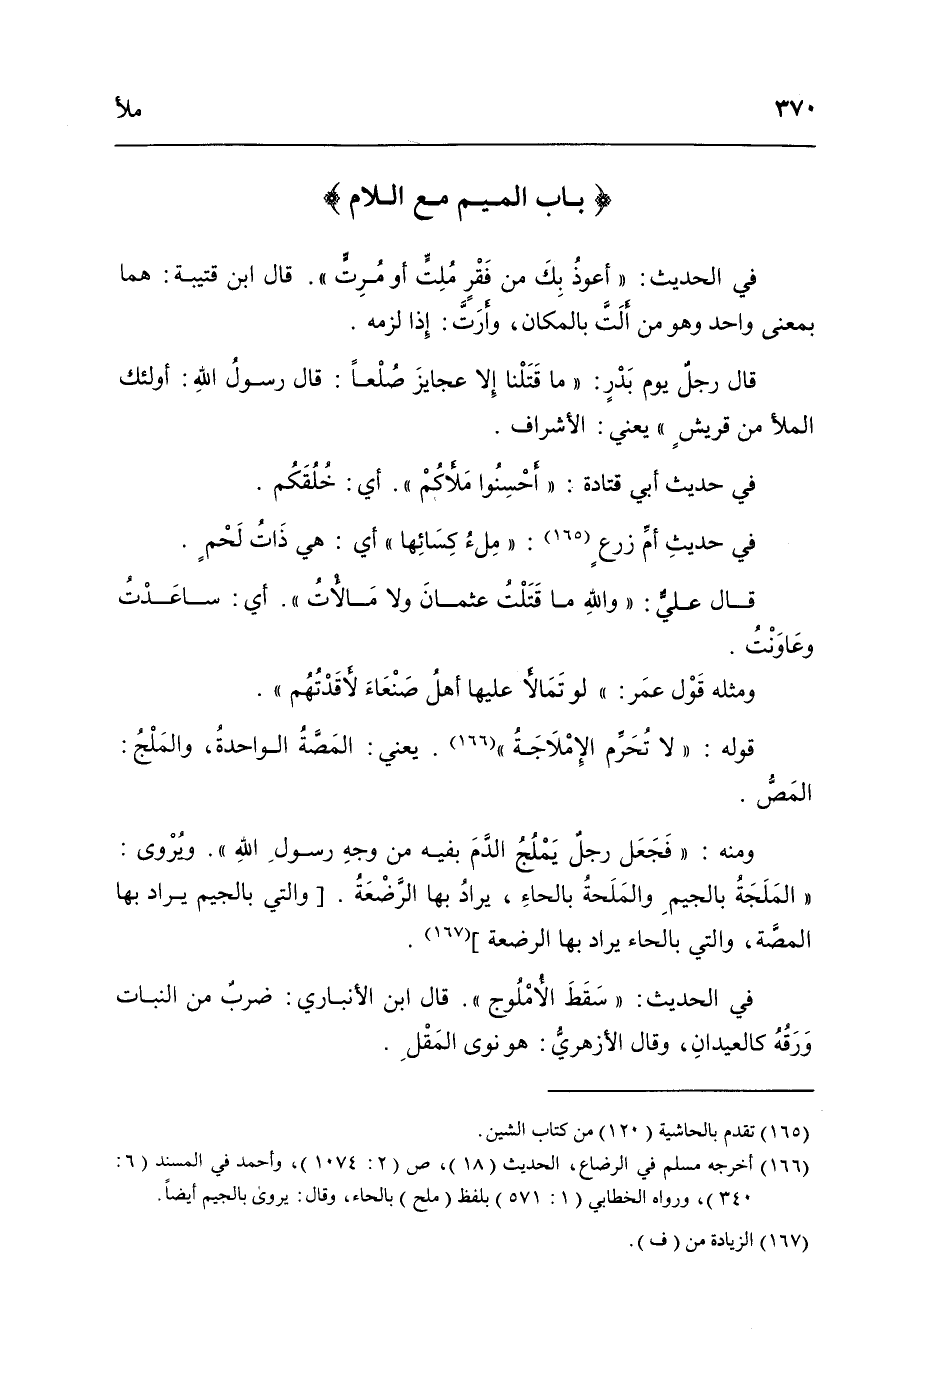 ٣٧٠
ملأ
﴿ بـاب الميـم مـع الـلام ﴾
في الحديث : « أعوذُ بِكَ من فَقْرٍ مُلِتٍّ أو مُـرِتٍّ » . قال ابن قتيبـة : هما
بمعنى واحد وهو من أَلَتَّ بالمكان، وأَرَتَّ : إذا لزمه .
قال رجلٌ يوم بَدْرٍ : « ما قَتَلْنا إلا عجايزَ صُلْعـاً : قال رسـولُ اللهِ : أولئك
الملأ من قريشٍ » يعني : الأشراف .
في حديث أبي قتادة : « أَحْسِنُوا مَلَأَكُمْ » . أي : خُلُقَكُم .
في حديثِ أمِّ زرعٍ (١٦٥) : « مِلءُ كِسَائِها » أي : هي ذَاتُ لَحْمٍ .
قـــال عـليٌّ : « واللهِ مـا قَتَلْتُ عثمـانَ ولا مَـالأْتُ » . أي : ســاعَـدْتُ
وعَاوَنْتُ .
ومثله قَوْل عمَر : » لو تَمَالأَ عليها أهلُ صَنْعَاءَ لأَقَدْتُهُم » .
قوله : « لا تُحَرِّم الإِمْلَاجَـةُ »(١٦٦) . يعني : المَصَّةُ الـواحدةُ، والمَلْجُ :
المَصُّ .
ومنه : « فَجَعَل رجلٌ يَمْلُجُ الدَّمَ بفيـه من وجهِ رسـولِ اللهِ » . ويُرْوى :
« المَلَجَةُ بالجيمِ والمَلَحةُ بالحاءِ ، يرادُ بها الرَّضْعَةُ . [ والتي بالجيم يـراد بها
المصَّة، والتي بالحاء يراد بها الرضعة ](١٦٧) .
في الحديث : « سَقَطَ الأُمْلُوج » . قال ابن الأنبـاري : ضربٌ من النبـات
وَرَقُهُ كالعيدانِ، وقال الأزهريُّ : هو نوى المَقْلِ .
(١٦٥) تقدم بالحاشية ( ١٢٠ ) من كتاب الشين .
(١٦٦) أخرجه مسلم في الرضاع، الحديث ( ١٨ )، ص ( ٢ : ١٠٧٤ )، وأحمد في المسند ( ٦ :
٣٤٠ )، ورواه الخطابي ( ١ : ٥٧١ ) بلفظ ( ملح ) بالحاء، وقال : يروىٰ بالجيم أيضاً .
(١٦٧) الزيادة من ( ف ) .